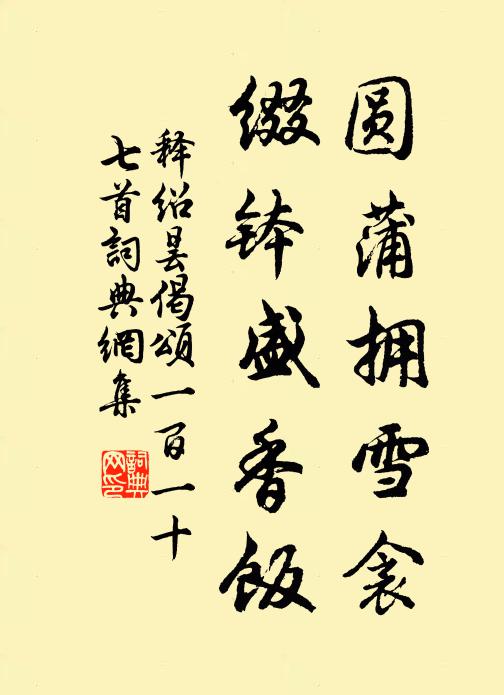 圆蒲拥雪衾
缀钵盛香饭
释绍昙偈頌一百一十
七首詞典網集
詞典网印